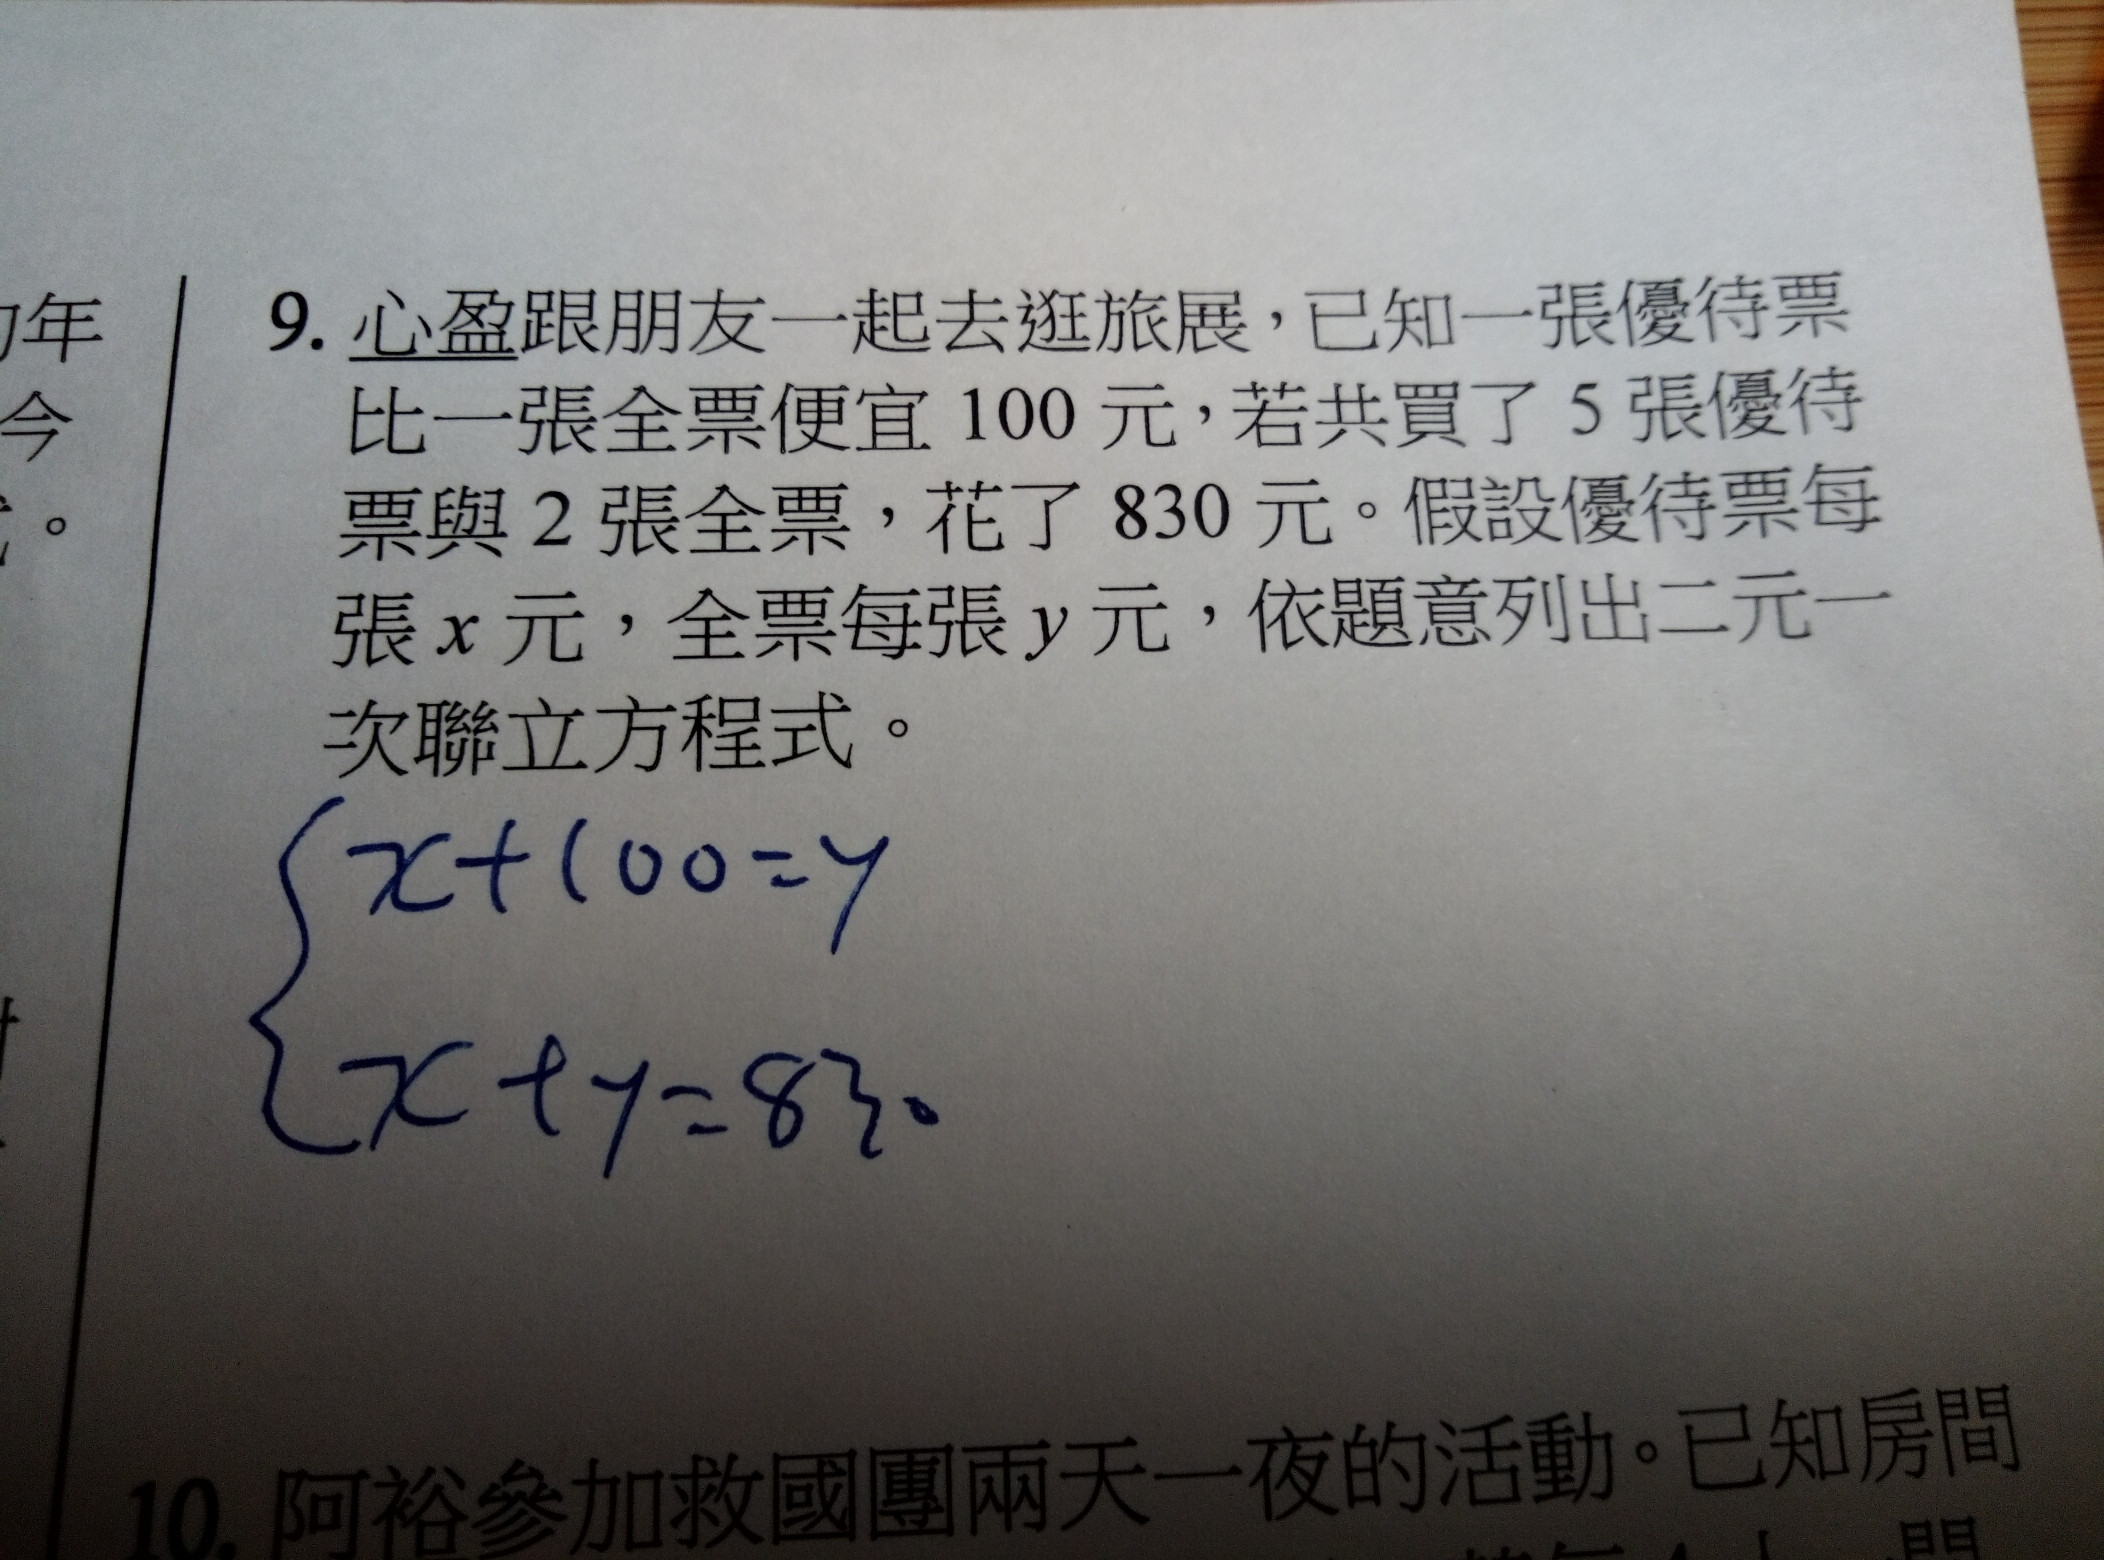 年
今
。
9. 心盈跟朋友一起去逛旅展，已知一張優待票
比一張全票便宜 100 元，若共買了 5 張優待
票與 2 張全票，花了 830 元。假設優待票每
張 x 元，全票每張 y 元，依題意列出二元一
次聯立方程式。
x+100=y
x+y=830
10. 阿裕參加救國團兩天一夜的活動。已知房間
間